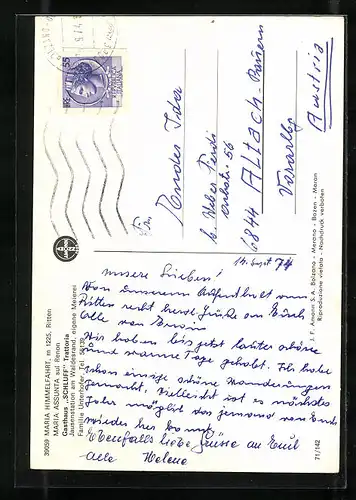 39059 MARIA HIMMELFAHRT, m 1225, Ritten
MARIA ASSUNTA sul Renon
Gasthaus „SCHLUFF” Trattoria
Jausenstation am Waldesrand, eigene Meierei
Familie Unterhofer
Tel.
14. Sept 74
Unsere Lieben!
Von unserem Aufenthalt vom
Ritten recht herzl. Grüße an Euch
Alle von
Wir haben bis jetzt lauter schöne
und warme Tage gehabt. Ich habe
schon einige schöne Wanderungen
gemacht. Vielleicht ist es nächstes
Jahr möglich das jemand von Euch
wieder
Ebenfalls liebe Grüsse an Emil
alle Helene
55
Frau
Ida
b. Weber Ferdi
56
6844 Altach-Bauern
Vorarlbg
Austria
J. F. Amonn S. A. Bolzano - Merano - Bozen - Meran
Riproduzione vietata - Nachdruck verboten
71/142